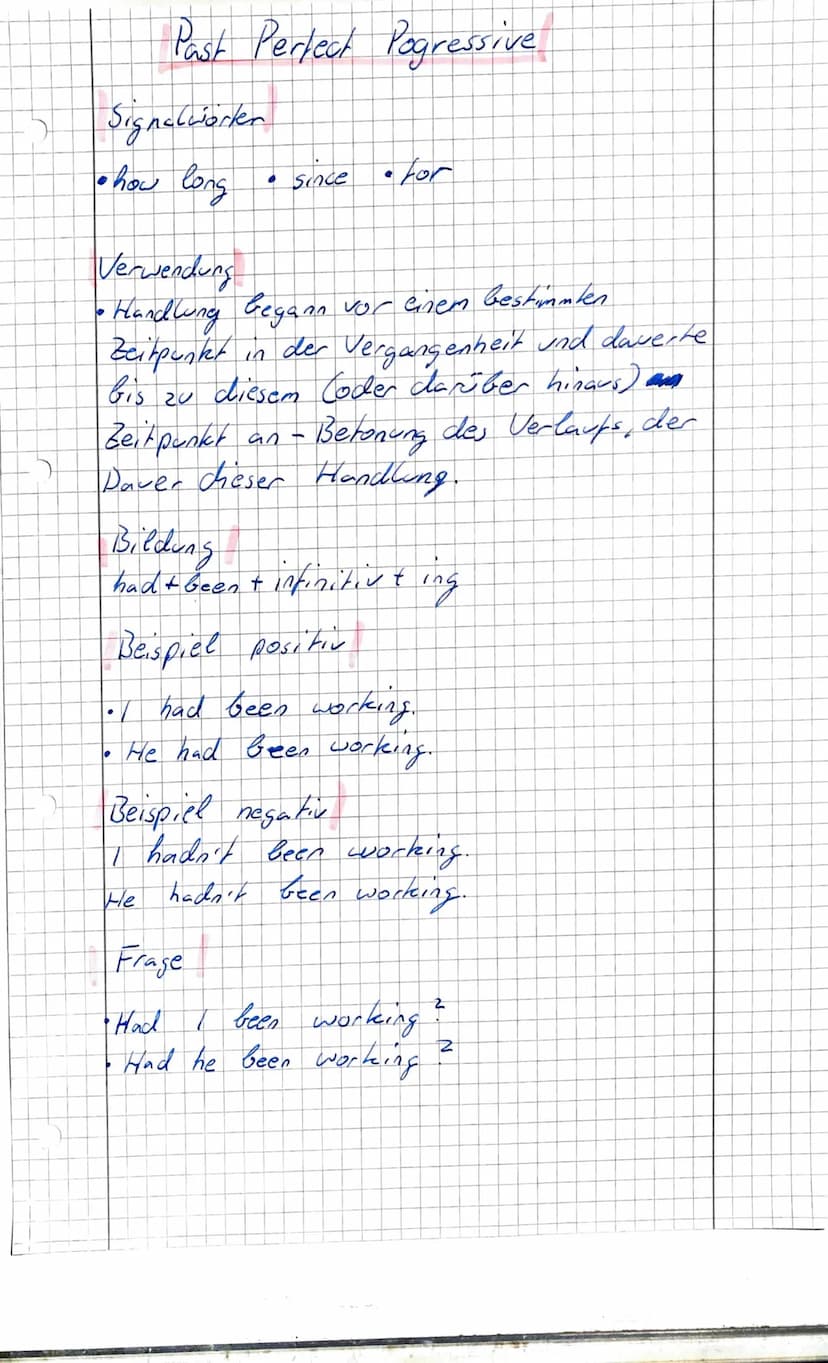 Past Perfect Pogressive
Signalwörter
• how long • since • for
Verwendung
• Handlung begann vor einem bestimmten
Zeitpunkt in der Vergangenheit und dauerte
bis zu diesem (oder darüber hinaus)
Zeitpunkt an - Betonung des Verlaufs, der
Dauer dieser Handlung.
Bildung
had + been + infinitiv + ing
Beispiel positiv
• I had been working.
• He had been working.
Beispiel negativ
I hadn't been working.
He hadn't been working.
Frage
• Had I been working?
• Had he been working?